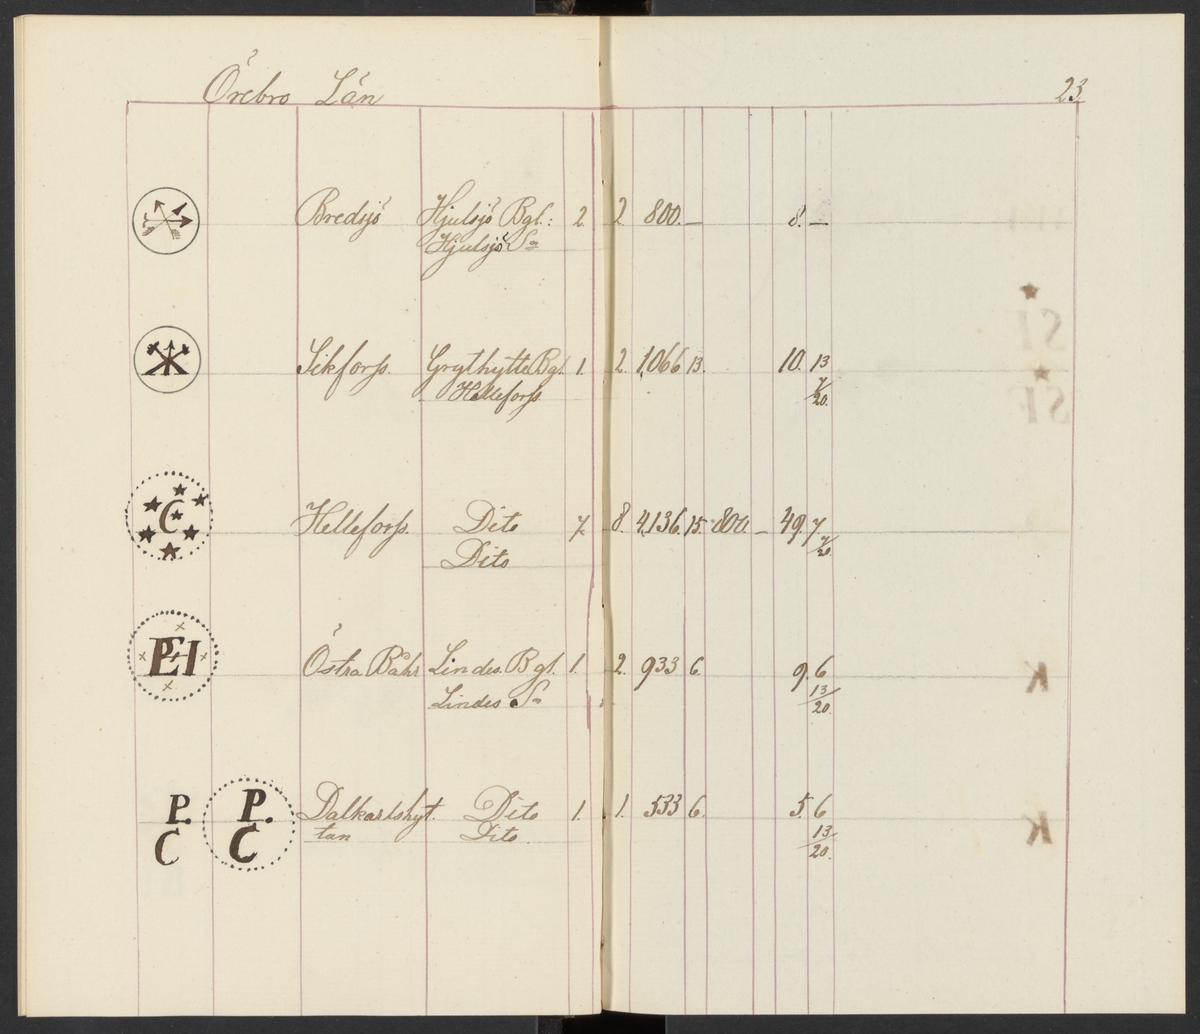 Örebro Län
23
Bredsjö Hjulsjö Bgl.: 2. 2 800. — 8. —
Hjulsjö Sn
Sikforss. Grythytte Bgl. 1. 2. 1,066 13. 10. 13
Hellefors 7/20.
C Helleforss. Dito 7. 8. 4,136. 15. 800. — 49. 7
Dito 7/20.
Östra Båhr Lindes. Bgl. 1. 2. 933 6. 9. 6
Lindes Sn 13/20.
P. P. Dalkarlshyt. Dito 1. 1. 533 6. 5. 6
C C tan Dito. 13/20.